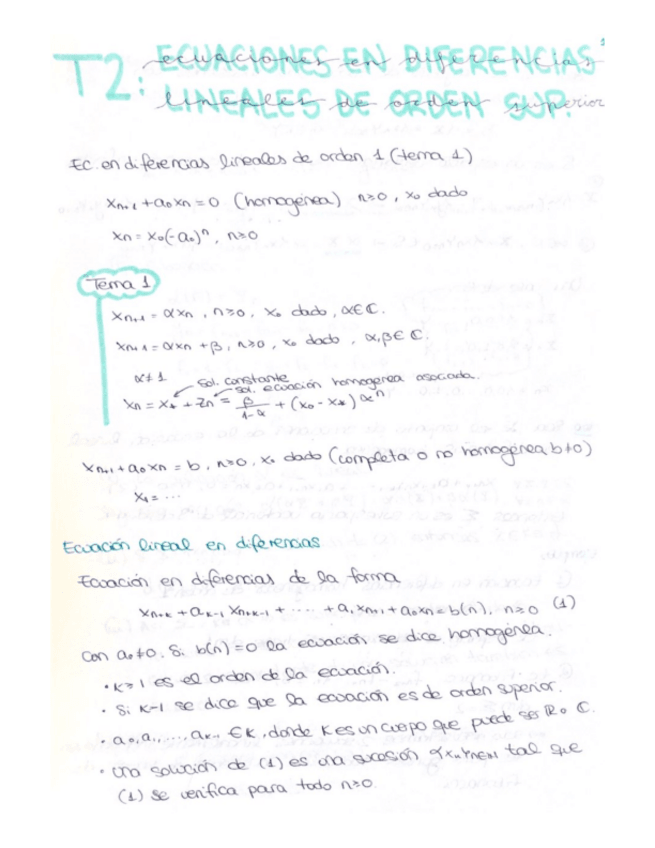 1
T2: ECUACIONES EN DIFERENCIAS
LINEALES DE ORDEN SUP.
ecuaciones en diferencias
lineales de orden superior
Ec. en diferencias lineales de orden 1 (tema 1)
xₙ₊₁ + a₀xₙ = 0 (homogénea) n≥0, x₀ dado
xₙ = x₀(-a₀)ⁿ, n≥0
Tema 1
xₙ₊₁ = αxₙ, n≥0, x₀ dado, α∈ℂ.
xₙ₊₁ = αxₙ + β, n≥0, x₀ dado, α,β∈ℂ.
α≠1
sol. constante
sol. ecuación homogénea asociada.
xₙ = x* + zₙ = β/(1-α) + (x₀ - x*)αⁿ
xₙ₊₁ + a₀xₙ = b, n≥0, x₀ dado (completa o no homogénea b≠0)
x₁ = ...
Ecuación lineal en diferencias
Ecuación en diferencias de la forma
xₙ₊ₖ + aₖ₋₁ xₙ₊ₖ₋₁ + ... + a₁xₙ₊₁ + a₀xₙ = b(n), n≥0 (1)
con a₀≠0. Si b(n)=0 la ecuación se dice homogénea.
· k≥1 es el orden de la ecuación.
· Si k>1 se dice que la ecuación es de orden superior.
· a₀, a₁, ..., aₖ₋₁ ∈ K, donde K es un cuerpo que puede ser ℝ o ℂ.
· Una solución de (1) es una sucesión {xₙ}ₙ∈ℕ tal que
(1) se verifica para todo n≥0.